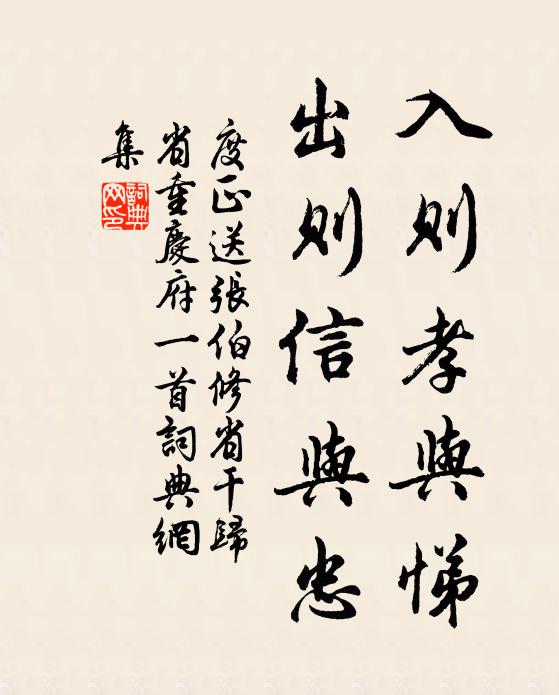 入則孝與悌
出則信與忠
度正送張伯修省干歸
省重慶府一首詞典網
集
詞典
网印